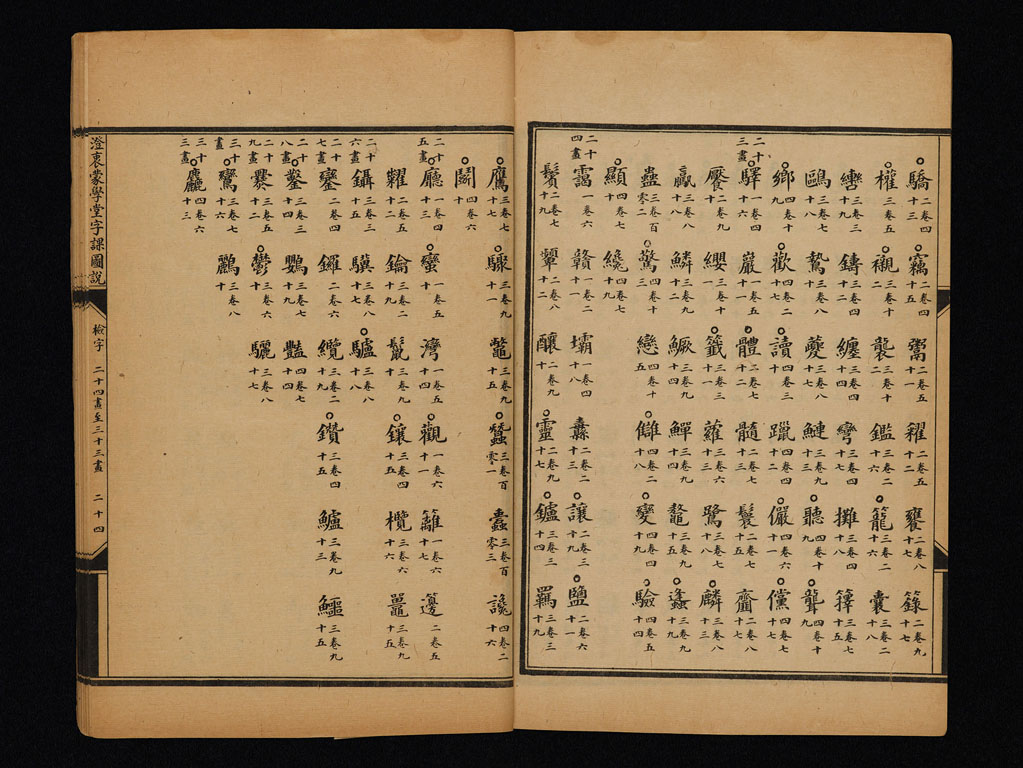 驕 二卷四十三 竊 二卷四十五 鬻 二卷五十一 糴 二卷五十二 饔 二卷八十七 籙 二卷九十七
權 三卷五 襯 三卷十二 襲 鑑 三卷二十六 籠 三卷二十六 囊 三卷二十八
轡 三卷三十九 鑄 三卷四十二 纏 三卷四十四 彎 三卷四十五 攤 三卷四十八 籜 三卷七十五
鷗 三卷七十八 鷙 三卷八十 夔 三卷八十 鰱 三卷九十三 聽 四卷十 聾 四卷十
四卷十 歡 四卷十七 讀 四卷二十 躐 四卷三十 儼 四卷六十一 儻 四卷七十六
二十三畫 驛 一卷四十六 巖 一卷五十一 體 二卷七十二 髓 二卷七十三 鬟 二卷七十五 齏 二卷八十七
饜 二卷九十 纓 三卷十 籤 三卷二十一 蘿 三卷六十三 鷺 三卷七十八 麟 三卷八十三
三卷八十八 鱗 三卷九十二 鱖 三卷九十四 鱓 三卷九十四 鼇 三卷九十五 蠭 三卷九十九
蠱 三卷百零二 驚 四卷十三 戀 四卷十五 讎 四卷二十八 變 四卷三十 驗 四卷五十四
顯 四卷六十 纔 四卷七十九
二十四畫 靄 一卷六 贛 一卷二十一 壩 一卷四十八 纛 二卷二十三 讓 二卷三十九 鹽 二卷六十一
鬢 二卷七十九 顰 二卷八十二 釀 二卷九十 靈 二卷九十七 鑪 三卷三十四 羈 三卷三十九
鷹 三卷七十七 驟 三卷九十一 鼈 三卷九十五 蠶 三卷百零一 蠹 三卷百零三 讒 四卷二十六
鬭 四卷六十
二十五畫 廳 一卷四十四 蠻 一卷五十 灣 一卷五十四 觀 一卷六十一 籬 一卷六十七 籩 二卷五
糶 二卷五十二 鑰 三卷二十 鬣 三卷九十 鑲 三卷四十五 欖 三卷六十六 鼉 三卷九十五
二十六畫 鑷 三卷三十五 驥 三卷八十七 驢 三卷八十八
二十七畫 鑾 二卷四十 鑼 二卷六 纜 三卷二十九 鑽 三卷四十五 鱸 三卷九十三 鱷 三卷九十五
二十八畫 鑿 三卷三十四 鸚 三卷七十九 豔 四卷七十四
二十九畫 爨 二卷九十二 鬱 三卷六十 驪 三卷八十七
三十畫 鸞 三卷七十六 鸝 三卷八十
三十三畫 麤 四卷六十三
澄衷蒙學堂字課圖說
檢字 二十四畫至三十三畫 二十四